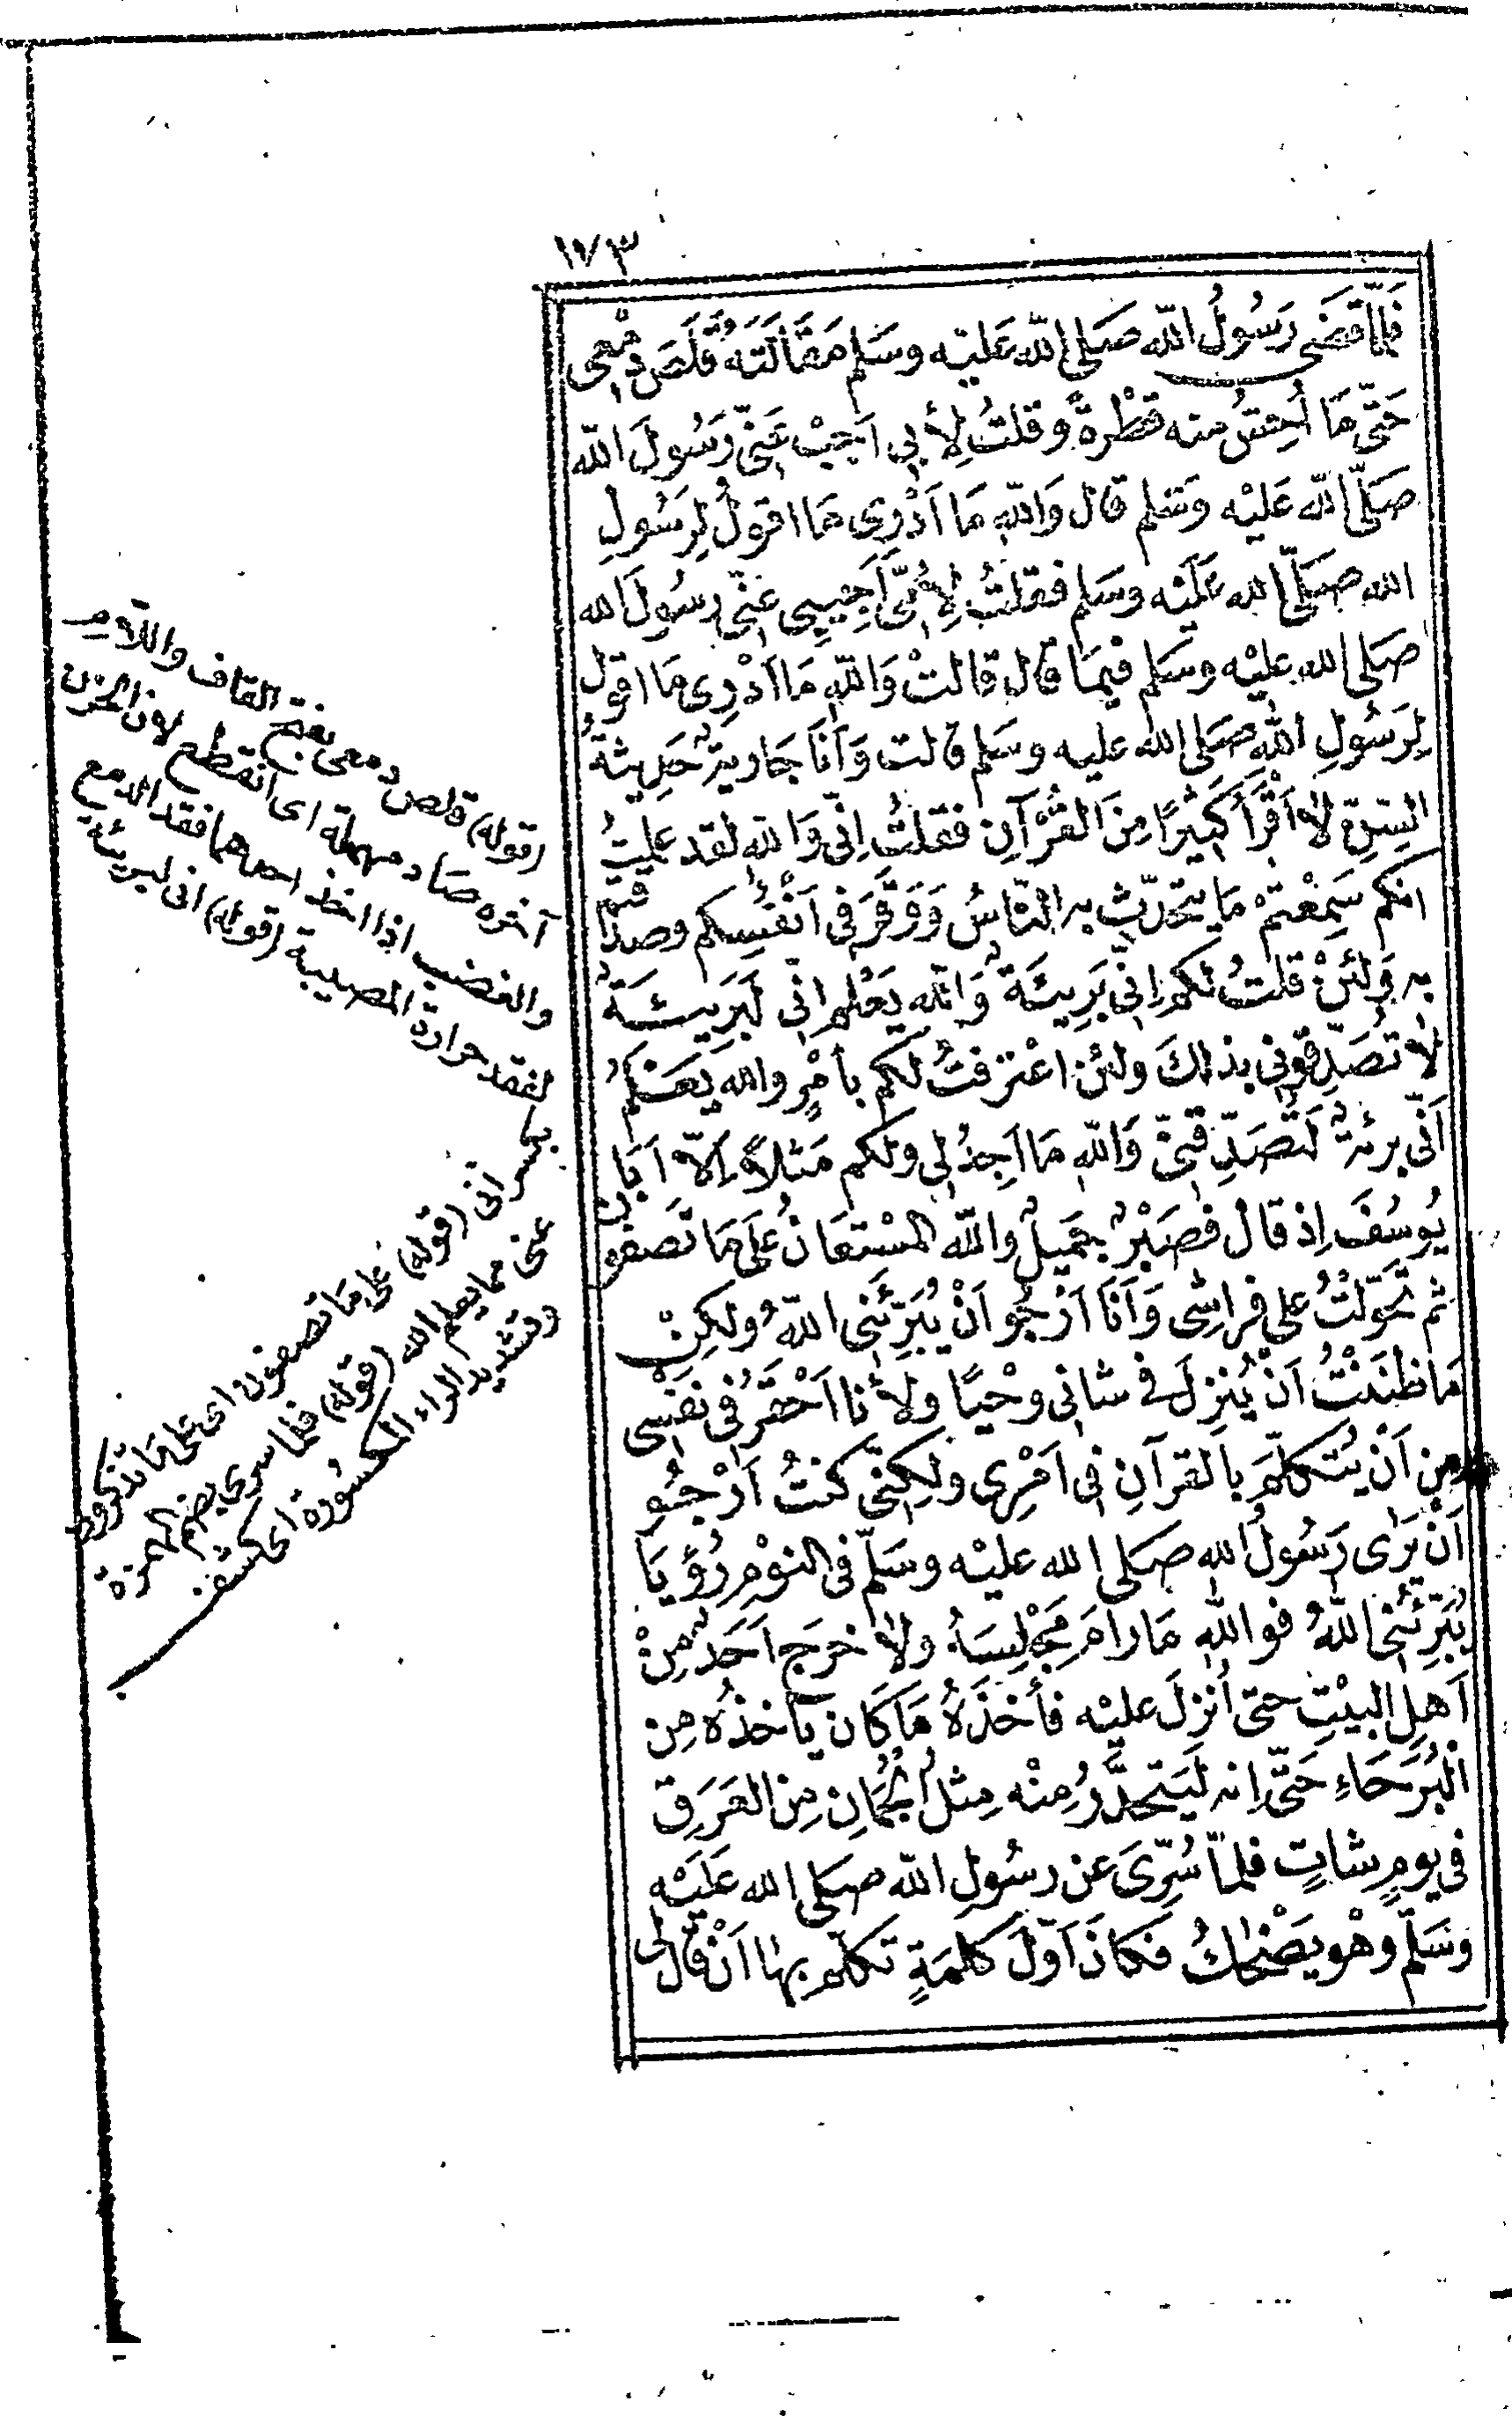 ١٧٣
فَلَمَّا قَضَى رَسُولُ اللّٰه صَلى اللّٰه عَلَيْه وسَلم مَقَالَتَهُ قَلَصَ دَمْعِى
حَتَّى مَا اُحِسُّ منه قَطْرةً وقلتُ لِأَبى اَجِبْ عَنّى رَسُولَ اللّٰه
صَلَّى اللّٰه عَلَيْه وَسَلم قال وَاللّٰهِ مَا اَدْرِى مَا اقولُ لِرَسُولِ
الله صَلَّى الله عَلَيْه وسَلم فقلتُ لِأُمِّى اَجِيبِى عَنِّى رسُولَ الله
صَلى الله عليْه وسَلم فيمَا قال قالتْ وَاللّٰهِ مَا اَدْرِى مَا اقول
لِرَسُولِ اللّٰهِ صَلى اللّٰه عليه وسَلم قالت وَاَنَا جَاريةٌ حَدِيثَةُ
السِّنِّ لاَ اَقْرَأُ كَثِيْرًا مِنَ القُرْآنِ فقلتُ اِنّى وَاللّٰهِ لقد علمتُ
انكم سَمِعْتمْ مَا يَتَحَدّث به النّاسُ وَوَقَرَ فى اَنْفُسِكم وصدقتم
به وَلَئِنْ قلتُ لكم اِنّى بَرِيئَةٌ وَاللّٰه يَعْلم اِنّى لَبَرِيئَةٌ
لاَ تُصَدِّقونى بذلكَ ولئن اعْترفتُ لكم بأَمْرٍ والله يَعْلَمُ
اَنّى بريئةٌ لَتُصَدِّقنّى وَاللّٰهِ مَا اَجِدُ لِى ولكم مَثلاً اِلّا اَبَا
يُوسُفَ اِذ قال فَصَبْرٌ جَمِيلٌ واللّٰه المسْتعَانُ عَلَى مَا تَصفون
ثم تحَوّلْتُ على فِرَاشِى وَاَنَا اَرْجُو اَنْ يُبَرِّئَنِى اللّٰهُ ولكِنْ
مَا ظنَنْتُ اَنْ يُنزِلَ فى شانى وحْيًا ولأنا اَحْقَرُ فى نَفْسِى
مِن اَنْ يُتَكلَّمَ بالقرآنِ فى اَمْرِى ولكِنّى كنتُ اَرْجُو
اَنْ يَرَى رَسُولُ الله صَلى الله عليْه وسَلّم فى النوْمِ رُؤيَا
يُبَرِّئنِى اللّٰهُ فوالله مَا رَامَ مَجْلِسَهُ ولا خرَج اَحَدٌ مِنْ
اَهلِ البيْتِ حتى اُنزِلَ عليْه فأَخَذَهُ مَا كَان يأخذُه مِن
البُرَحَاءِ حَتَّى اِنه لَيَتَحَدَّرُ مِنْه مِثلُ الجُمَانِ مِن العَرَقِ
فى يومٍ شاتٍ فلمّا سُرِّىَ عن رسُولِ اللّٰه صَلى الله عَلَيْه
وسَلّم وهْو يَضْحَكُ فكانَ اَوّلَ كَلمَةٍ تكلّم بها اَنْ قال لى
(قوله) قلص دمعى بفتح القاف واللام
آخره صاد مهملة اى انقطع لان الحزن
والغضب اذا اخذ احدهما فقد الدمع
لفقد حرارة المصيبة (قوله) انى لبريئة
بكسر انى (قوله) على ما تصفون اى على ما تذكرون
عنى مما يعلم الله (قوله) فلما سرى بضم المهمزة
وتشديد الراء المكسورة اى كشف